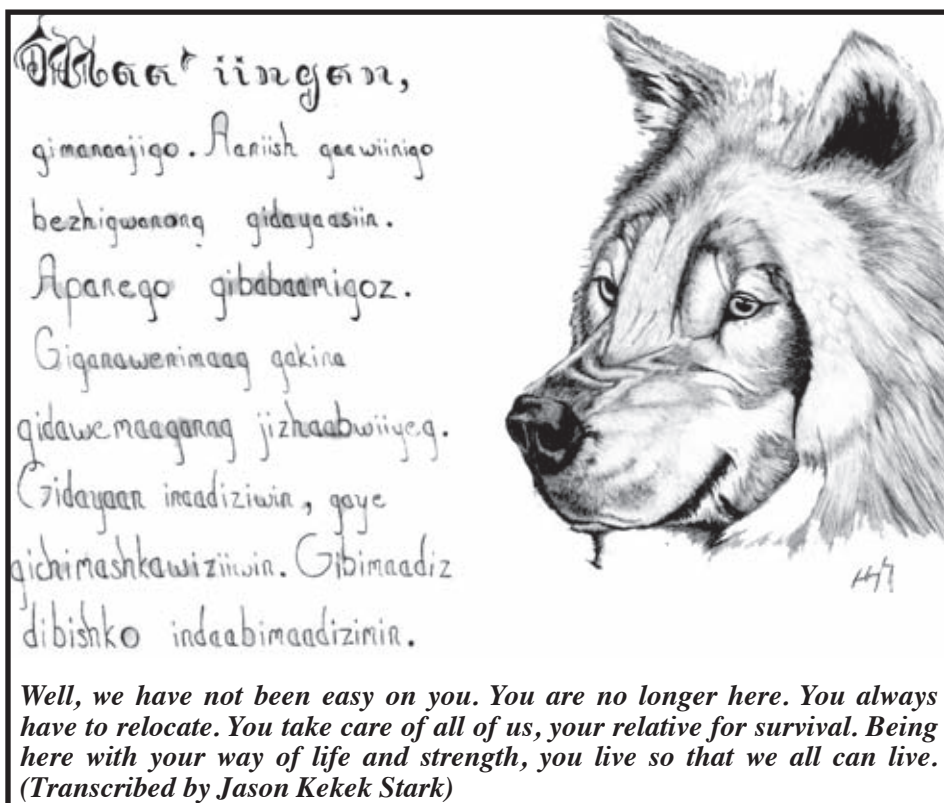 Maa'iingan,
gimanaajigo. Aaniish gaawiinigo
bezhigwanong gidayaasiin.
Apanego gibabaamigoz.
Giganawenimaag gakina
gidawemaaganag jizhaabwiiyeg.
Gidayaan inaadiziwin, gaye
gichimashkawiziiwin. Gibimaadiz
dibishko indaabimaadizimin.
Well, we have not been easy on you. You are no longer here. You always
have to relocate. You take care of all of us, your relative for survival. Being
here with your way of life and strength, you live so that we all can live.
(Transcribed by Jason Kekek Stark)